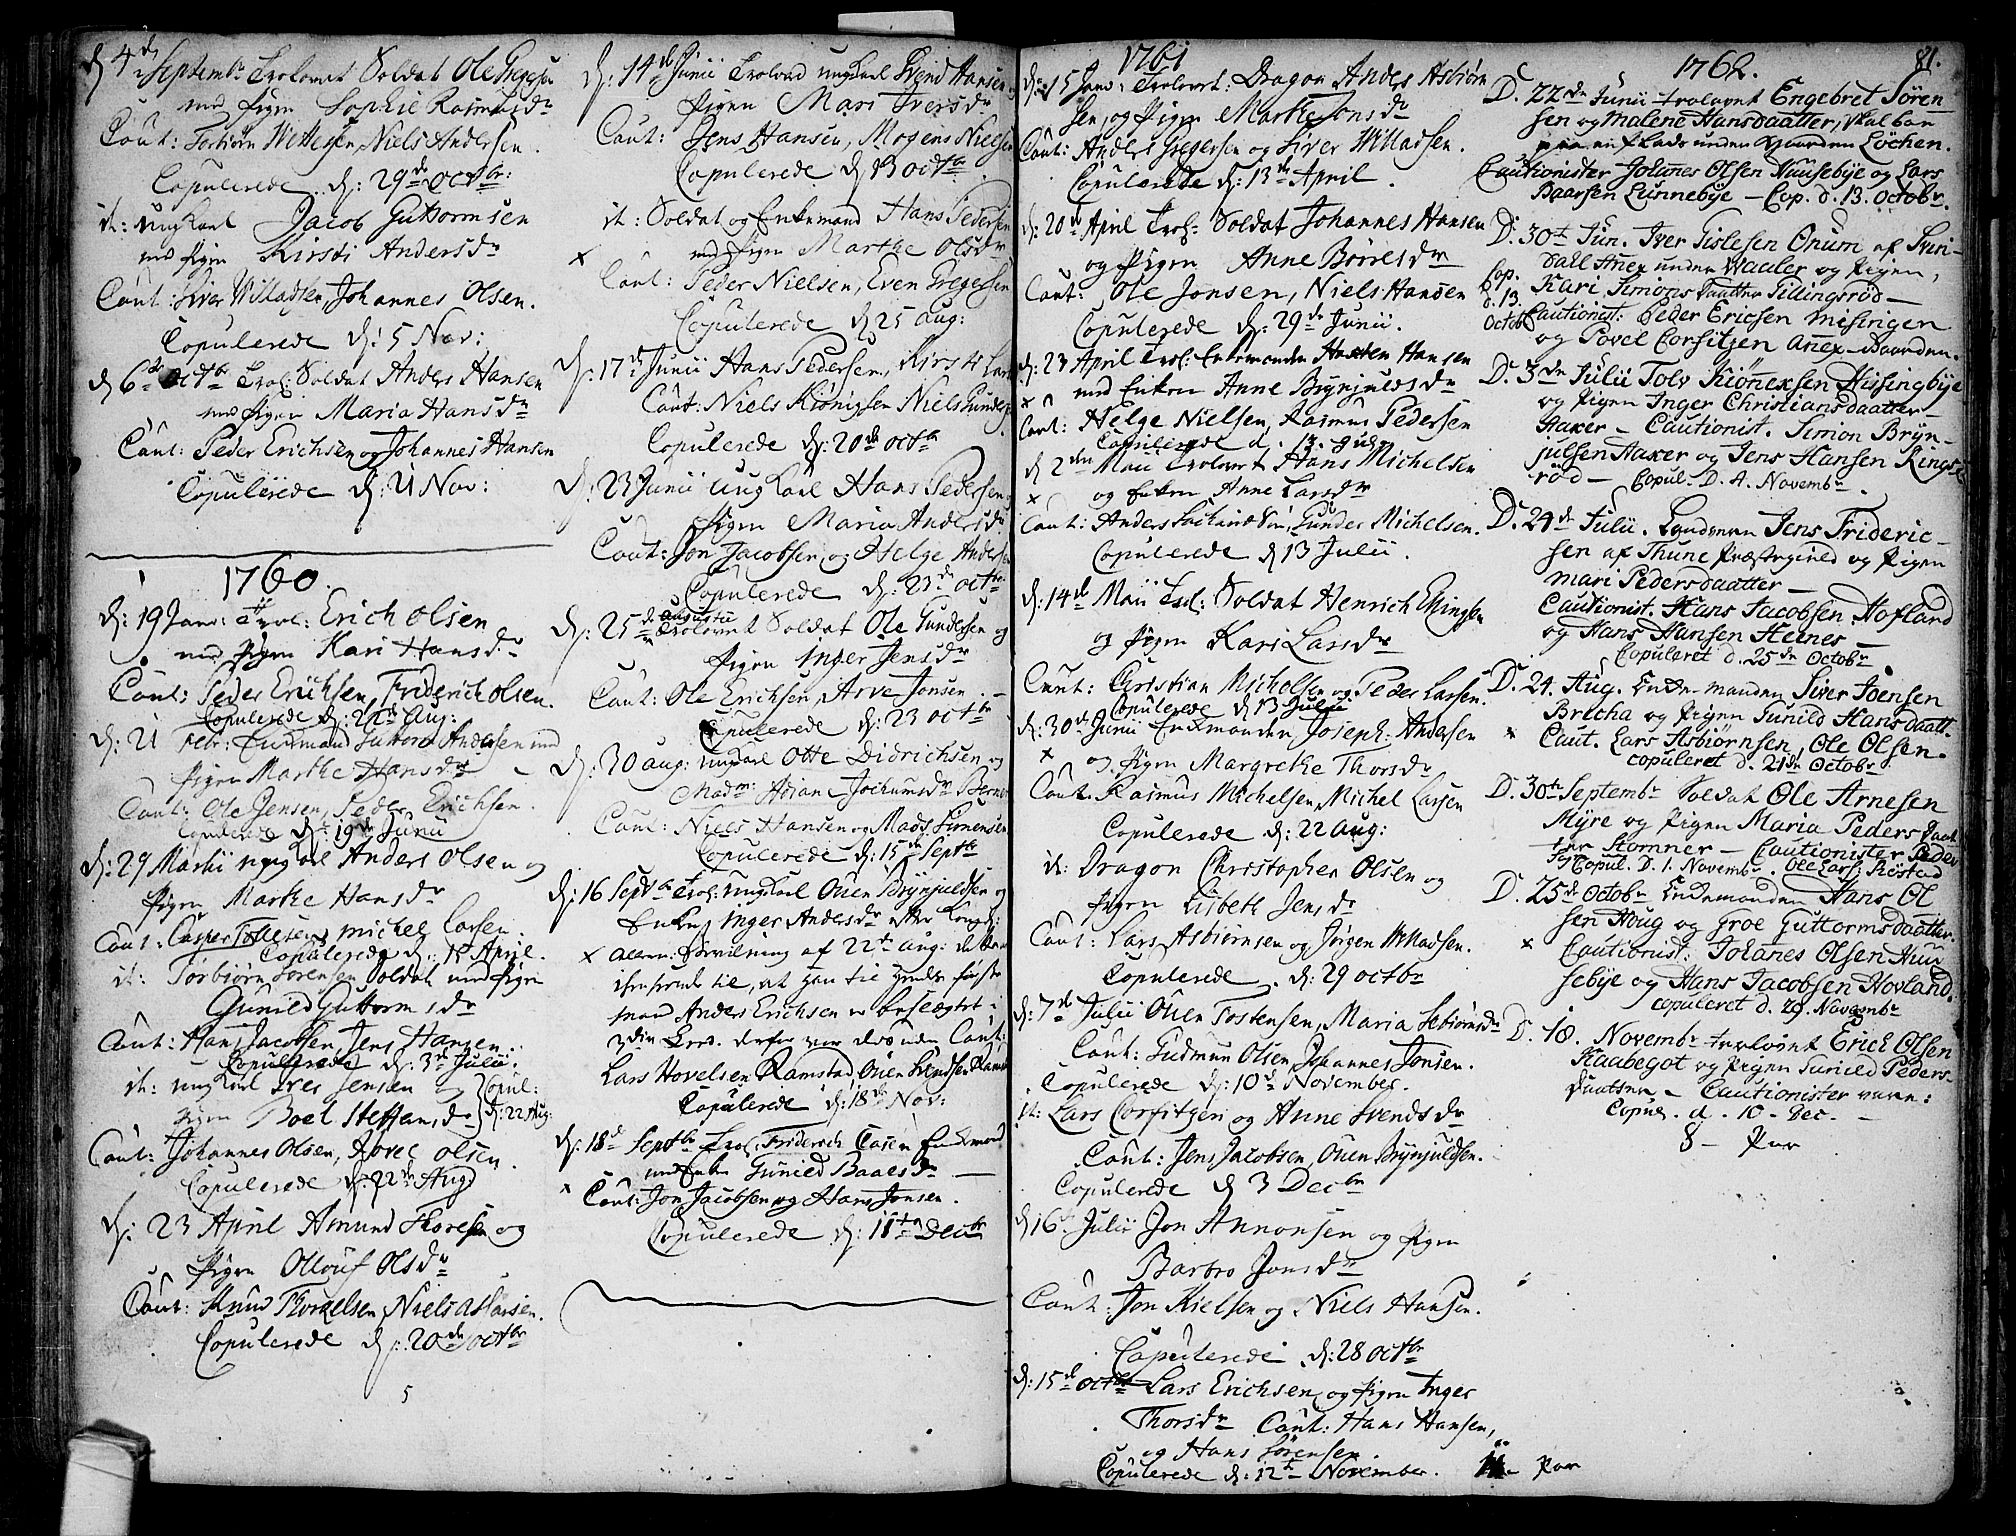 d 4de Septembr Trolovet Soldat Ole Gregersen
med Pigen Sophie Rasmusdr
Caut: Torbiørn Wettesen, Niels Andersen.
Copulerede d: 29de Octbr:
it: ungkarl Jacob Guttormsen
med Pigen Kirsti Andersdr
Caut: Siver Willadsen, Johannes Olsen.
Copulerede d: 5 Nov:
d 6te Octbr Trol: Soldat Anders Hansen
med Pigen Maria Hansdr
Caut: Peder Erichsen og Johannes Hansen
Copulerede d: 21 Nov:
1760.
d: 19 Janr: Trol: Erich Olsen
med Pigen Kari Hansdr
Caut: Peder Erichsen, Friderich Olsen.
Copulerede d: 21de Aug:
d: 21 Febr: Enkemand Guttorm Andersen med
Pigen Marthe Hansdr
Caut: Ole Jensen, Peder Erichsen.
Copulerede d: 19de Junii
d: 29 Martii ungkarl Anders Olsen og
Pigen Marthe Hansdr
Caut: Casper Tollesen, Michel Larsen.
Copulerede d: 15 April.
it: Torbiørn Sørensen Soldat med Pigen
Gunild Guttormsdr
Caut: Hans Jacobsen, Jens Hansen.
Copulerede d: 3de Julii.
it: ungkarl Iver Jensen og
Pigen Boel Steffensdr
Copul: d: 22 Aug:
Caut: Johannes Olsen, Povel Olsen.
Copulerede d: 22de Aug:
d: 23 April Amund Thoresen og
Pigen Ollouf Olsdr
Caut: Knud Thorkelsen, Niels Aslarsen.
Copulerede d: 20de Octbr
5
d: 14de Junii Trolovd ungkarl Svend Hansen og
Pigen Mari Iversdr
Caut: Jens Hansen, Mogens Nielsen
Copulerede d: 13 Octbr
it: Soldat og Enkemand Hans Pedersen
med Pigen Marthe Olsdr
x
Caut: Peder Nielsen, Even Gregersen
Copulerede d 25 Aug:
d: 17de Junii Hans Pedersen, Kirsti Lars
Caut: Niels Kiønigsen Niels Gunders
Copulerede d: 20de Octbr
d: 23 Junii Ungkarl Hans Pedersen og
Pigen Maria Andersdr
Caut: Jon Jacobsen og Helge Andersen
Copulerede d: 23de Octbr
d: 25de Augustii Trolovet Soldat Ole Gundersen og
Pigen Inger Jensdr
Caut: Ole Erichsen, Arve Jonsen.
Copulerede d: 23 Octbr
d: 30 Aug: ungkarl Otte Didrichsen og
Madm: Adriane Jochumsdr
Caut: Niels Hansen og Mads Simensen
Copulerede d: 15de Septbr
d: 16 Septbr Trol: ungkarl Ouen Brynjuldsen og
Enken Inger Andersdr efter Kongl:
x allern: Bevilning af 22te Aug:
at han til hendes første
mand Anders Erichsen er besvogret i
3die Led. derfor var derunder Caut:
Lars Hovelsen Ramstad, Ouen Svendsen Ramstad
Copulerede d: 18de Nov:
d: 18de Septbr Trol: Friderich Enkemand
med Enke Gunild Baarsdr
x Caut: Jon Jacobsen og Hans Jonsen.
Copulerede d: 11te Decbr
1761
d: 15 Janr: Trolovet: Dragon Anders Asbiørn
sen, og Pigen Marthe Jonsdr
Caut: Anders Gregersen og Siver Willadsen.
Copulerede d: 13de April.
d: 20de April Trol: Soldat Johannes Hansen
og Pigen Anne Børresdr
Caut: Ole Jonsen, Niels Hansen
Copulerede d: 29de Junii.
d: 23 April Trol: Enkemanden Hansen
x med Enken Anne Brynjuldsdr
Caut: Helge Nielsen, Rasmus Pedersen
Copulerede d. 13. Julj
d 2den Maii Trolovet Hans Michelsen
x og Enken Anne Larsdr
Caut: Anders Gunder Michelsen.
Copulerede d 13 Julii.
d: 14de Maii Trol: Soldat Henrich Ellingsen
og Pigen Kari Larsdr
Caut: Christian Michelsen og Peder Larsen.
Copulerede d 13 Julii
d: 30de Junii Enkemanden Joseph: Andersen
x og Pigen Margrethe Thorsdr
Caut. Rasmus Michelsen, Michel Larsen
Copulerede d: 22 Aug:
it: Dragon Christopher Olsen og
Pigen Lisbeth Jensdr
Caut: Lars Asbiørnsen og Jørgen Willadsen.
Copulerede d: 29 Octbr
d: 7de Julii Ouen Tostensen, Maria
Caut: Gudmun Olsen, Johannes Jonsen.
Copulerede d: 10de November.
it: Lars Corfitzen og Anne Svendsdr
Caut: Jens Jacobsen, Ouen Brynjuldsen.
Copulerede d 3 Decbr
d 16 Julii Jon Annonsen og Pigen
Barbro Jonsdr
Caut: Jon Kielsen og Niels Hansen.
Copulerede d: 28 Octbr
d: 15de Octbr Lars Erichsen og Pigen Inger
Thorsdr Caut: Hans Hansen,
og Hans Sørensen
Copulerede d: 12te November. 11 - Par
1762. 81.
D. 22de Junii trolovet Engebret Søren
sen og Malene Hansdaatter, Skalbar
paa en Plads under Gaarden Løchen.
Cautionister Johanes Olsen Huusebye og Lars
Baarsen Lunnebye - Cop. d. 13. Octobr.
D. 30te Jun. Iver Gislesen Onum af Svin
dall Anex under Waaler og Pigen,
Cop. d. 13. Octobr
Kari Simons daatter Sillingsrød -
Cautionist: Peder Ericsen Misingen
og Povel Corfitzen Anex-Gaarden.
D. 3de Julii Tolv Kiønexsen Hissingbye
og Pigen Inger Christiansdaatter
Haxer - Cautionist. Simon Bryn-
julsen Haxer og Jens Hansen Rings
rød - Copul. D. 4. Novembr.
D. 24de Julii. Lændsman Jens Frideric-
sen af Thune Præstegield og Pigen
Mari Pedersdaatter -
Cautionist. Hans Jacobsen Hofland
og Hans Hansen Heenes -
Copuleret d. 25de Octobr.
D. 24. Aug. Enkemanden Siver Joensen
Brecha og Pigen Gunild Hansdaatt.
x Caut. Lars Asbiørnsen, Ole Olsen.
copuleret d. 21de Octobr
D. 30te Septembr Soldat Ole Arnesen
Myre og Pigen Maria Peders daat
ter Homner - Cautionister Peder
Copul. D. 1. Novembr. Ole Lars: Røstad
D. 25de Octobr Enkemanden Hans Ol
sen Houg og Groe Guttormsdaatter.
x Cautionist: Johanes Olsen Huu
sebye og Hans Jacobsen Hovland.
copuleret d. 29. Novembr
D. 18. Novembr trolovet Erich Olsen
Kaabegot og Pigen Gunild Peders-
daatter - Cautionister vare:
Copul. d. 10. Dec. -
8 - Par